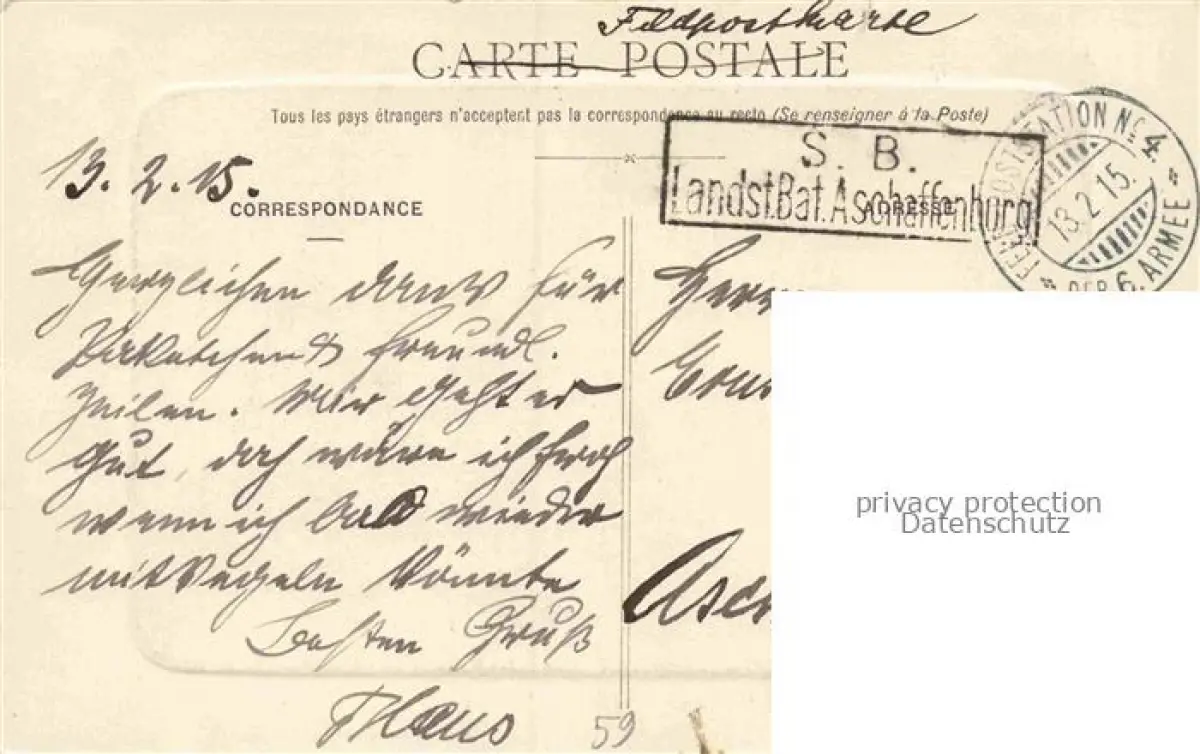 Feldpostkarte
CARTE POSTALE
Tous les pays étrangers n'acceptent pas la correspondance au recto (Se renseigner à la Poste)
S. B.
Landst.Bat.Aschaffenburg
FELDPOSTSTATION No. 4.
13.2.15.
DER 6. ARMEE
13. 2. 15.
CORRESPONDANCE
ADRESSE
Herzlichen dank für
Paketchen & freundl.
Zeilen. Mir geht es
gut, doch wäre ich froh
wenn ich bald wieder
mitkegeln könnte
Besten Gruß
Herrn
Asch
59
privacy protection
Datenschutz